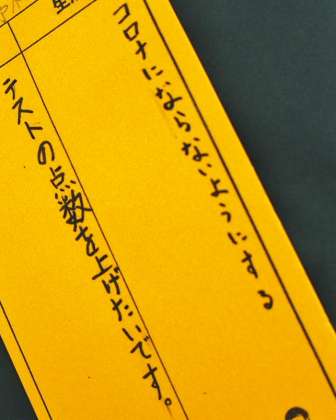 コロナにならないようにする
テストの点数を上げたいです。